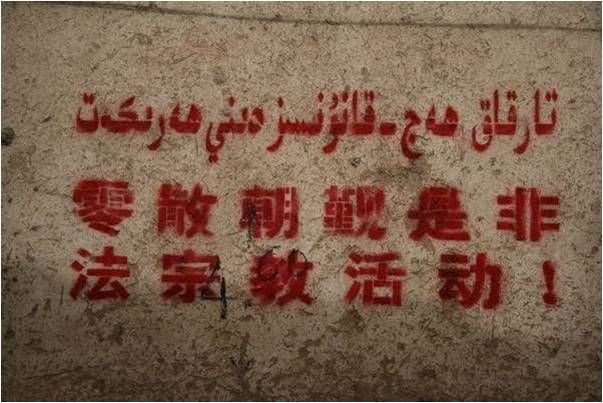 تارقاق ھەج-قانۇنسىز دىنىي ھەرىكەت
零散朝觐是非
法宗教活动！
4 60